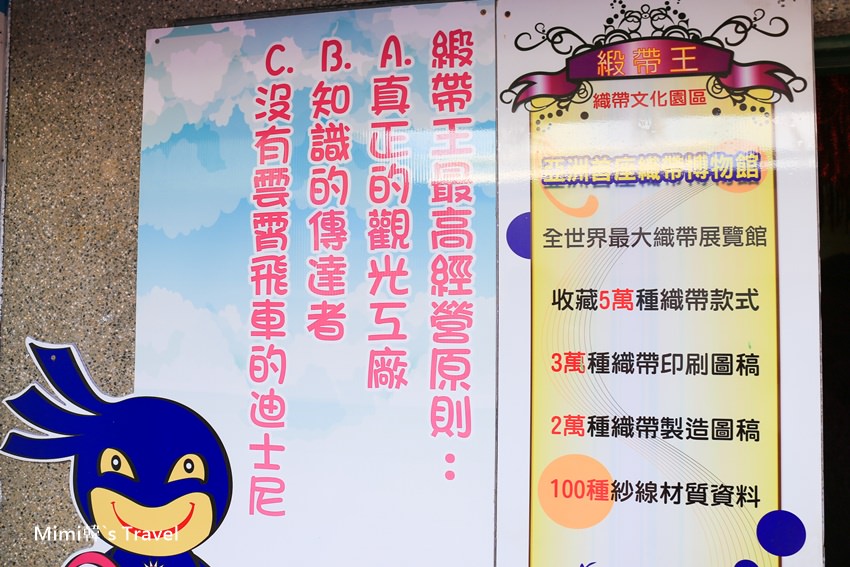 緞帶王最高經營原則：
A.真正的觀光工廠
B.知識的傳達者
C.沒有雲霄飛車的迪士尼
緞帶王
織帶文化園區
亞洲首座織帶博物館
全世界最大織帶展覽館
收藏5萬種織帶款式
3萬種織帶印刷圖稿
2萬種織帶製造圖稿
100種紗線材質資料
Mimi韓`s Travel